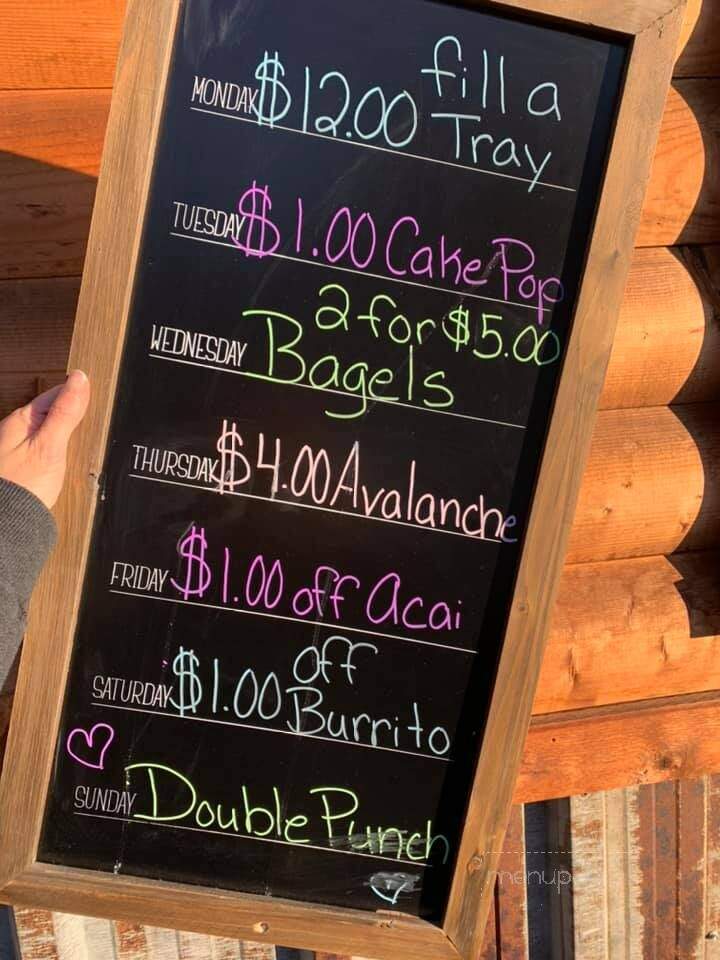 fill a
MONDAY $12.00 Tray
TUESDAY $1.00 Cake Pop
2 for $5.00
WEDNESDAY Bagels
THURSDAY $4.00 Avalanche
FRIDAY $1.00 off Acai
off
SATURDAY $1.00 Burrito
SUNDAY Double Punch
menup